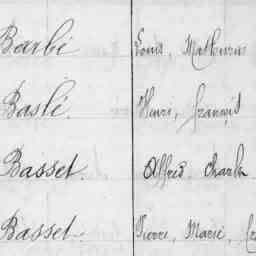 Barbé Louis, Mathurin
Baslé Henri, françois
Basset. Alfred Charles
Basset. Pierre, Marie,